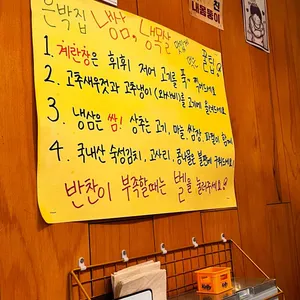 은박집 냉쌈, 냉목살 맛있게 먹는 꿀팁
1. 계란장은 휘휘 저어 고기를 푹~ 찍는다
2. 고추새우젓과 고추냉이(와사비)를 고기에 올린다
3. 냉삼은 쌈! 상추는 고기, 마늘, 쌈장, 파절이 함께
4. 국내산 숙성김치, 고사리, 콩나물은 불판에 구워드세요
반찬이 부족할때는 벨을 눌러주세요